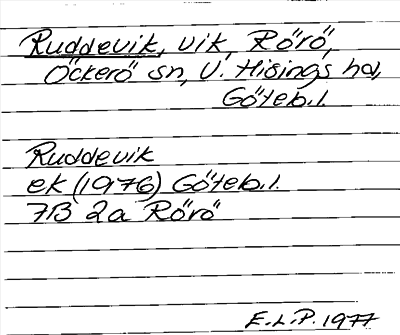 Ruddevik, vik, Rörö,
Öckerö sn, V. Hisings hd,
Göteb.l.
Ruddevik
ek (1976) Göteb.l.
7B 2a Rörö
E.L.P. 1977